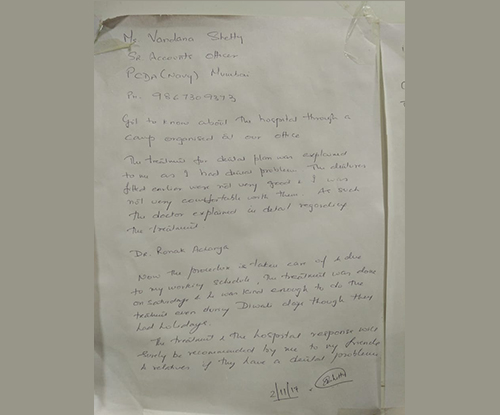 Ms Vandana Shetty
Sr. Accounts Officer
PCDA (Navy) Mumbai
Ph. 9867309373
Got to know about the hospital through a
camp organised at our office
The treatment for dental plan was explained
to me as I had dental problem. The dentures
fitted earlier were not very good & I was
not very comfortable with them. As such
the doctor explained in detail regarding
the treatment
Dr. Ronak Acharya
Now the procedure is taken care of & due
to my working schedule, the treatment was done
on saturdays & he was kind enough to do the
treatment even during Diwali days though they
had holidays.
The treatment & the hospital response will
surely be recommended by me to my friends
& relatives if they have a dental problem
2/11/17